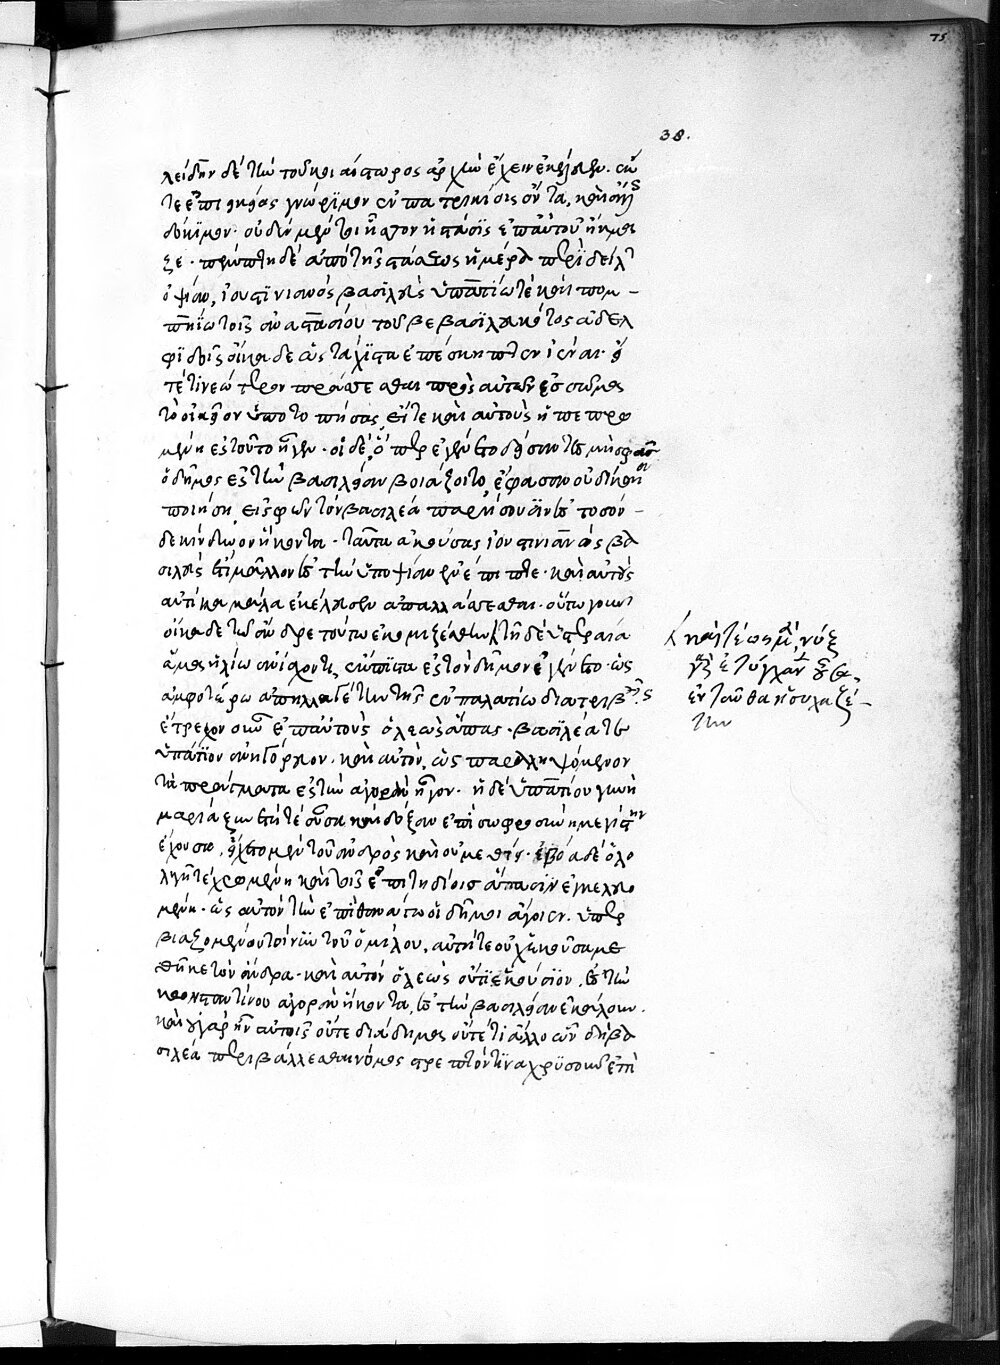 38.
75
λείδην δὲ τὴν τοῦ κοιαίστωρος ἀρχὴν ἔχειν ἐκέλευεν. ἔν
τε ἐπιεικείας γνώριμον ἐν πατρικίοις ὄντα, καὶ ἄλλως
δόκιμον. οὐδὲν μέντοι ἧσσον ἡ στάσις ἐπ' αὐτοῦ ἤκμα
ζε. πέμπτη δὲ ἀπὸ τῆς στάσεως ἡμέρα περὶ δείλην
ὀψίαν, ἰουστινιανὸς βασιλεὺς ὑπατίω τὲ καὶ πομ-
πηίω τοῖς ἀναστασίου τοῦ βεβασιλευκότος ἀδελ
φιδοῖς οἴκαδε ὡς τάχιστα ἐπέσκηπτεν ἰέναι. εἴ
τέ τι νεώτερον πράσσεσθαι πρὸς αὐτῶν ἐς σῶμα
τὸ οἰκεῖον ὑποτοπήσας, εἴτε καὶ αὐτοὺς ἡ πεπρω
μένη ἐς τοῦτο ἦγεν. οἱ δὲ, ὅπερ ἐγένετο δείσαντες μὴ σφᾶς
ὁ δῆμος ἐς τὴν βασιλείαν βιάζοιτο, ἔφασαν οὐ δίκαια
ποιήσειν, εἰ σφῶν τὸν βασιλέα παρήσουσιν ἐς τοσόν-
δε κίνδυνον ἥκοντα. ταῦτα ἀκούσας ἰουστινιανὸς βα
σιλεὺς ἔτι μᾶλλον ἐς τὴν ὑποψίαν ἐνέπιπτε. καὶ αὐτοὺς
αὐτίκα μάλα ἐκέλευεν ἀπαλλάσσεσθαι. οὕτω γοῦν
οἴκαδε τὼ ἄνδρε τούτω ἐκομιζέσθην. τῇ δὲ ὑστεραία
ἅμα ἡλίω ἀνίσχοντι, ἔκπυστα ἐς τὸν δῆμον ἐγένετο. ὡς
ἀμφοτέρω ἀπηλλαγέτην τῆς ἐν παλατίω διατριβῆς.
ἔτρεχον οὖν ἐπ' αὐτοὺς ὁ λεὼς ἅπας. βασιλέα τε
ὑπάτιον ἀνηγόρευον. καὶ αὐτὸν, ὡς παραληψόμενον
τὰ πράγματα ἐς τὴν ἀγορὰν ἦγον. ἡ δὲ ὑπατίου γυνὴ
μαρία ξυνετή τὲ οὖσα καὶ δόξαν ἐπὶ σωφροσύνη μεγίστην
ἔχουσα, εἴχετο μὲν τοῦ ἀνδρὸς καὶ οὐ μεθίει. ἐβόα δὲ ὀλο
λυγῇ τὲ χρωμένη καὶ τοῖς ἐπιτηδείοις ἅπασιν ἐγκελευο
μένη. ὡς αὐτὸν τὴν ἐπὶ θανάτω οἱ δῆμοι ἄγοιεν. ὑπερ
βιαζομένου τοίνυν τοῦ ὁμίλου, αὐτή τε οὐχ ἑκοῦσα με
θῆκε τὸν ἄνδρα. καὶ αὐτὸν ὁ λεὼς οὔτι ἑκούσιον, ἐς τὴν
κωνσταντίνου ἀγορὰν ἥκοντα, ἐς τὴν βασιλείαν ἐκάλουν.
καὶ οὐ γὰρ ἦν αὐτοῖς οὔτε διάδημα οὔτέ τι ἄλλο ὧν δὴ βα
σιλέα περιβάλλεσθαι νόμος στρεπτόν τινα χρυσοῦν ἐπὶ
καὶ τέως μὲν, νὺξ
γὰρ ἐτύγχανεν οὖσα,
ἐνταῦθα ἡσυχαζέ-
την